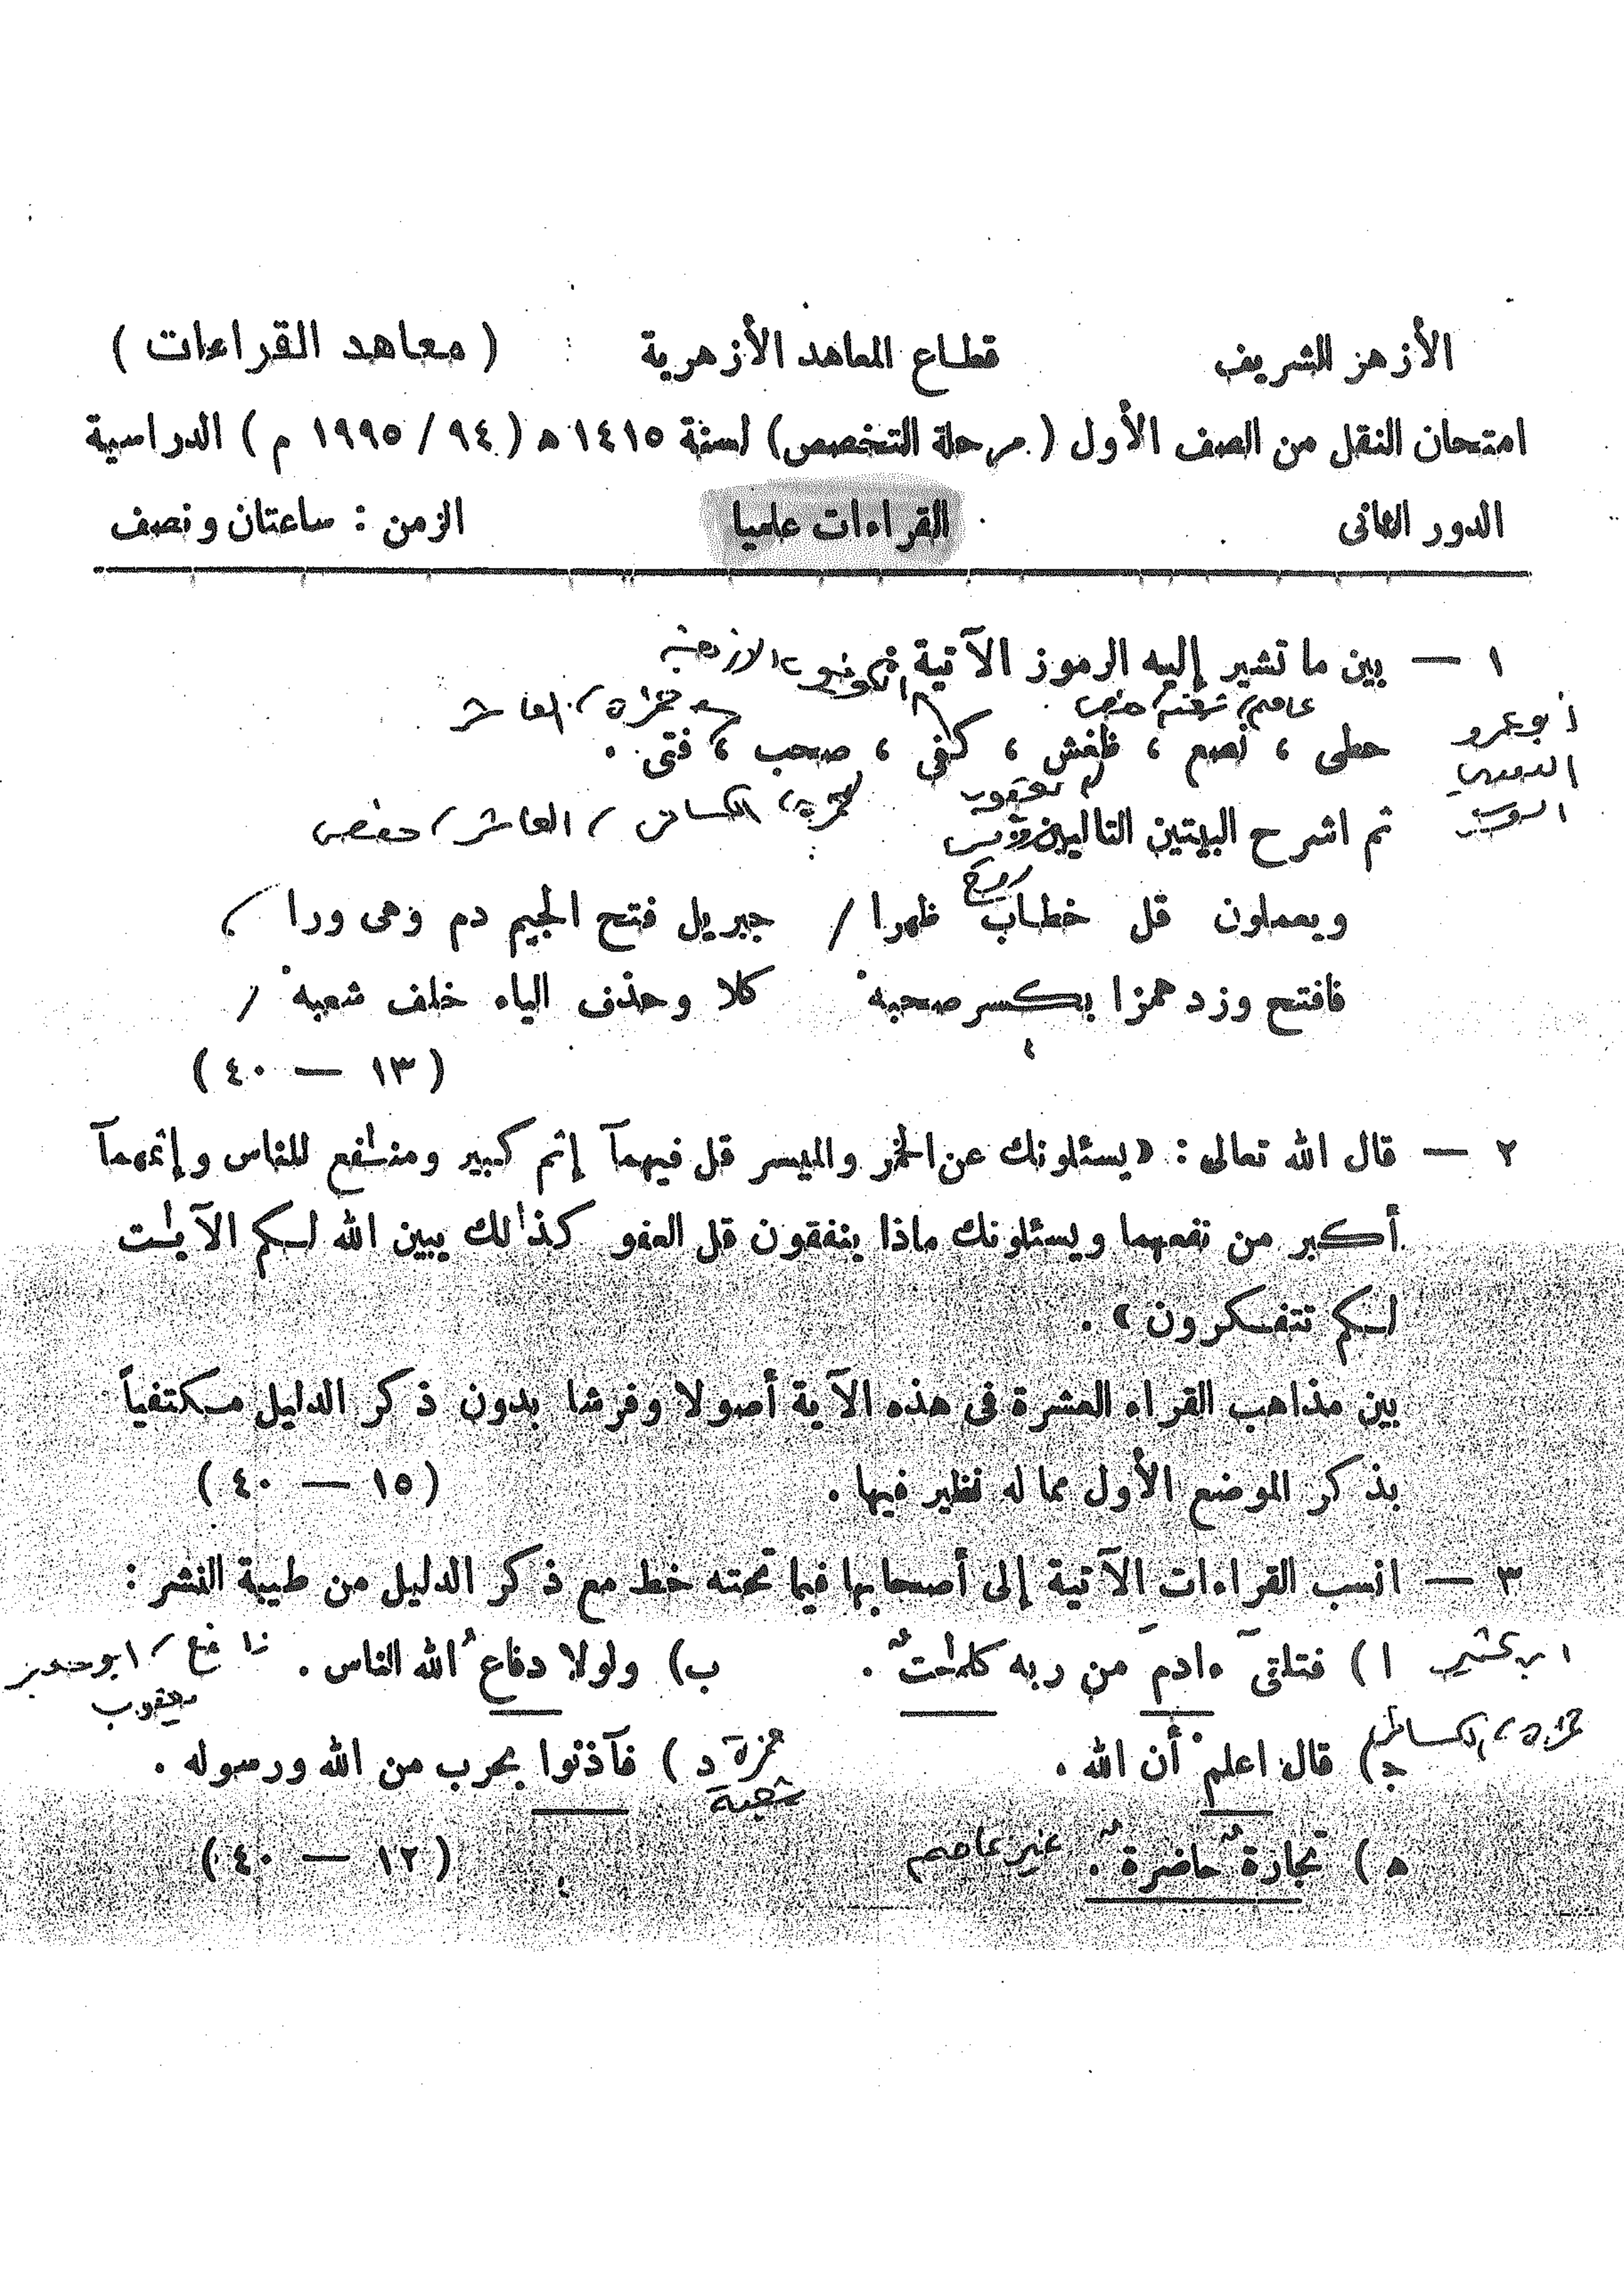 الأزهر الشريف قطاع المعاهد الأزهرية : ( معاهد القراءات )
امتحان النقل من الصف الأول ( مرحلة التخصص ) لسنة ١٤١٥ ه ( ٩٤ / ١٩٩٥ م ) الدراسية
الدور الثانى القراءات علميا الزمن : ساعتان ونصف
١ — بين ما تشير إليه الرموز الآتية
عاصم / حفص حمزة / العاشر
أبو عمرو
حطى ، نصع ، ظغش ، كفى ، صحب ، فتى .
الدورى
يعقوب
حمزة / الكسائى / العاشر / حفص
ثم اشرح البيتين التاليين
رويس
روح
ويعملون قل خطاب ظهرا / جبريل فتح الجيم دم وهى ورا
فافتح وزد همزا بكسر صحبه كلا وحذف الياء خلف شعبه /
( ١٣ — ٤٠ )
٢ — قال الله تعالى : « يسئلونك عن الخمر والميسر قل فيهمآ إثم كبير ومنٰفع للناس وإثمهمآ
أكبر من نفعهما ويسئلونك ماذا ينفقون قل العفو كذٰلك يبين الله لكم الآيٰت
لعلكم تتفكرون » .
بين مذاهب القراء العشرة فى هذه الآية أصولا وفرشا بدون ذكر الدليل مكتفياً
بذكر الموضع الأول مما له نظير فيها . ( ١٥ — ٤٠ )
٣ — انسب القراءات الآتية إلى أصحابها فيما تحته خط مع ذكر الدليل من طيبة النشر :
ابن كثير ا ) فتلقىٓ ءادمَ من ربه كلمٰتٌ . ب) ولولا دفاعُ الله الناس . نافع / أبو جعفر
يعقوب
حمزة / الكسائى ج) قال اعلمْ أن الله . د ) فآذنوا بحرب من الله ورسوله . حمزة
شعبة
ه ) تجارةٌ حاضرةٌ . غير عاصم ( ١٢ — ٤٠ )